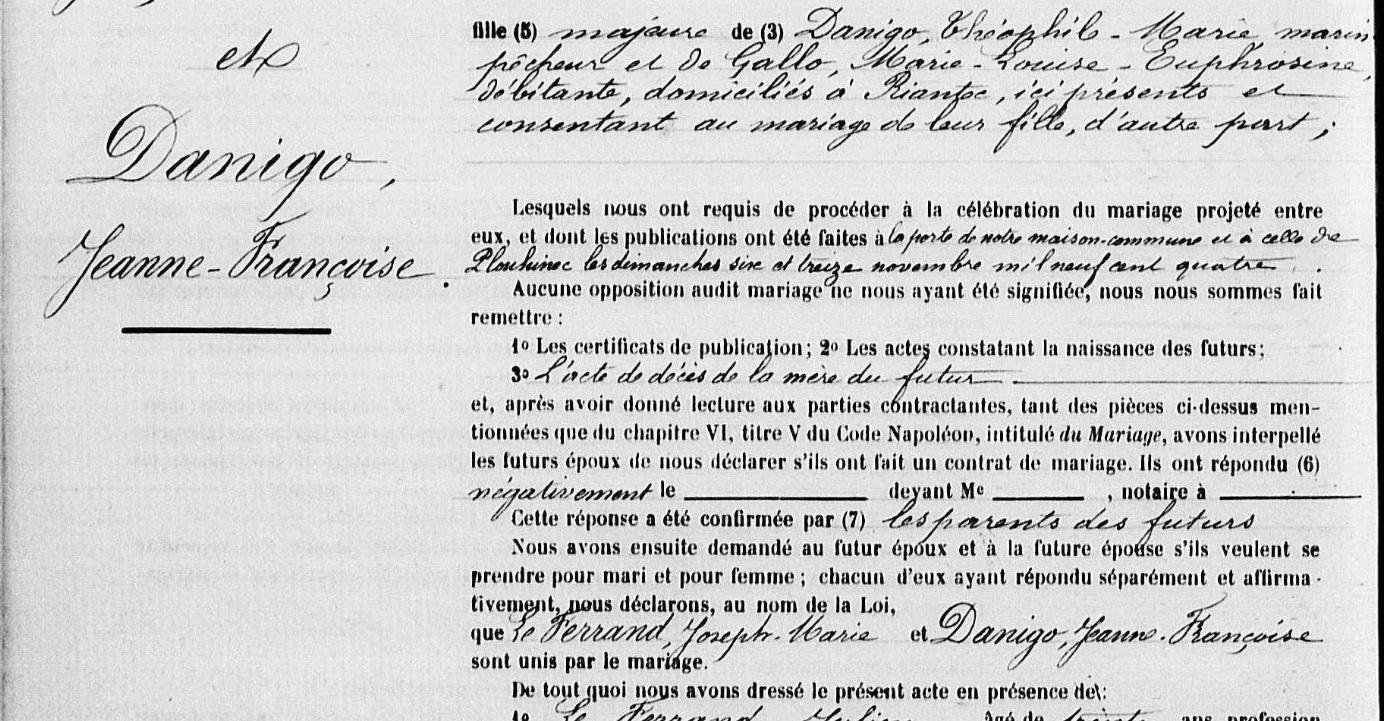 et
Danigo,
Jeanne-Françoise.
fille (5) majeure de (3) Danigo, Théophile-Marie marin
pêcheur et de Gallo, Marie-Louise-Euphrosine,
débitante, domiciliés à Riantec, ici présents et
consentant au mariage de leur fille, d'autre part;
Lesquels nous ont requis de procéder à la célébration du mariage projeté entre
eux, et dont les publications ont été faites à la porte de notre maison-commune et à celle de
Plouhinec les dimanches six et treize novembre mil neuf cent quatre.
Aucune opposition audit mariage ne nous ayant été signifiée, nous nous sommes fait
remettre :
1º Les certificats de publication; 2º Les actes constatant la naissance des futurs;
3º L'acte de décès de la mère du futur
et, après avoir donné lecture aux parties contractantes, tant des pièces ci-dessus men-
tionnées que du chapitre VI, titre V du Code Napoléon, intitulé du Mariage, avons interpellé
les futurs époux de nous déclarer s'ils ont fait un contrat de mariage. Ils ont répondu (6)
négativement le devant Me , notaire à
Cette réponse a été confirmée par (7) les parents des futurs
Nous avons ensuite demandé au futur époux et à la future épouse s'ils veulent se
prendre pour mari et pour femme ; chacun d'eux ayant répondu séparément et affirma-
tivement, nous déclarons, au nom de la Loi,
que Le Ferrand, Joseph-Marie et Danigo, Jeanne-Françoise
sont unis par le mariage.
De tout quoi nous avons dressé le présent acte en présence de :
1º Le Ferrand Julien âgé de trente ans, profession